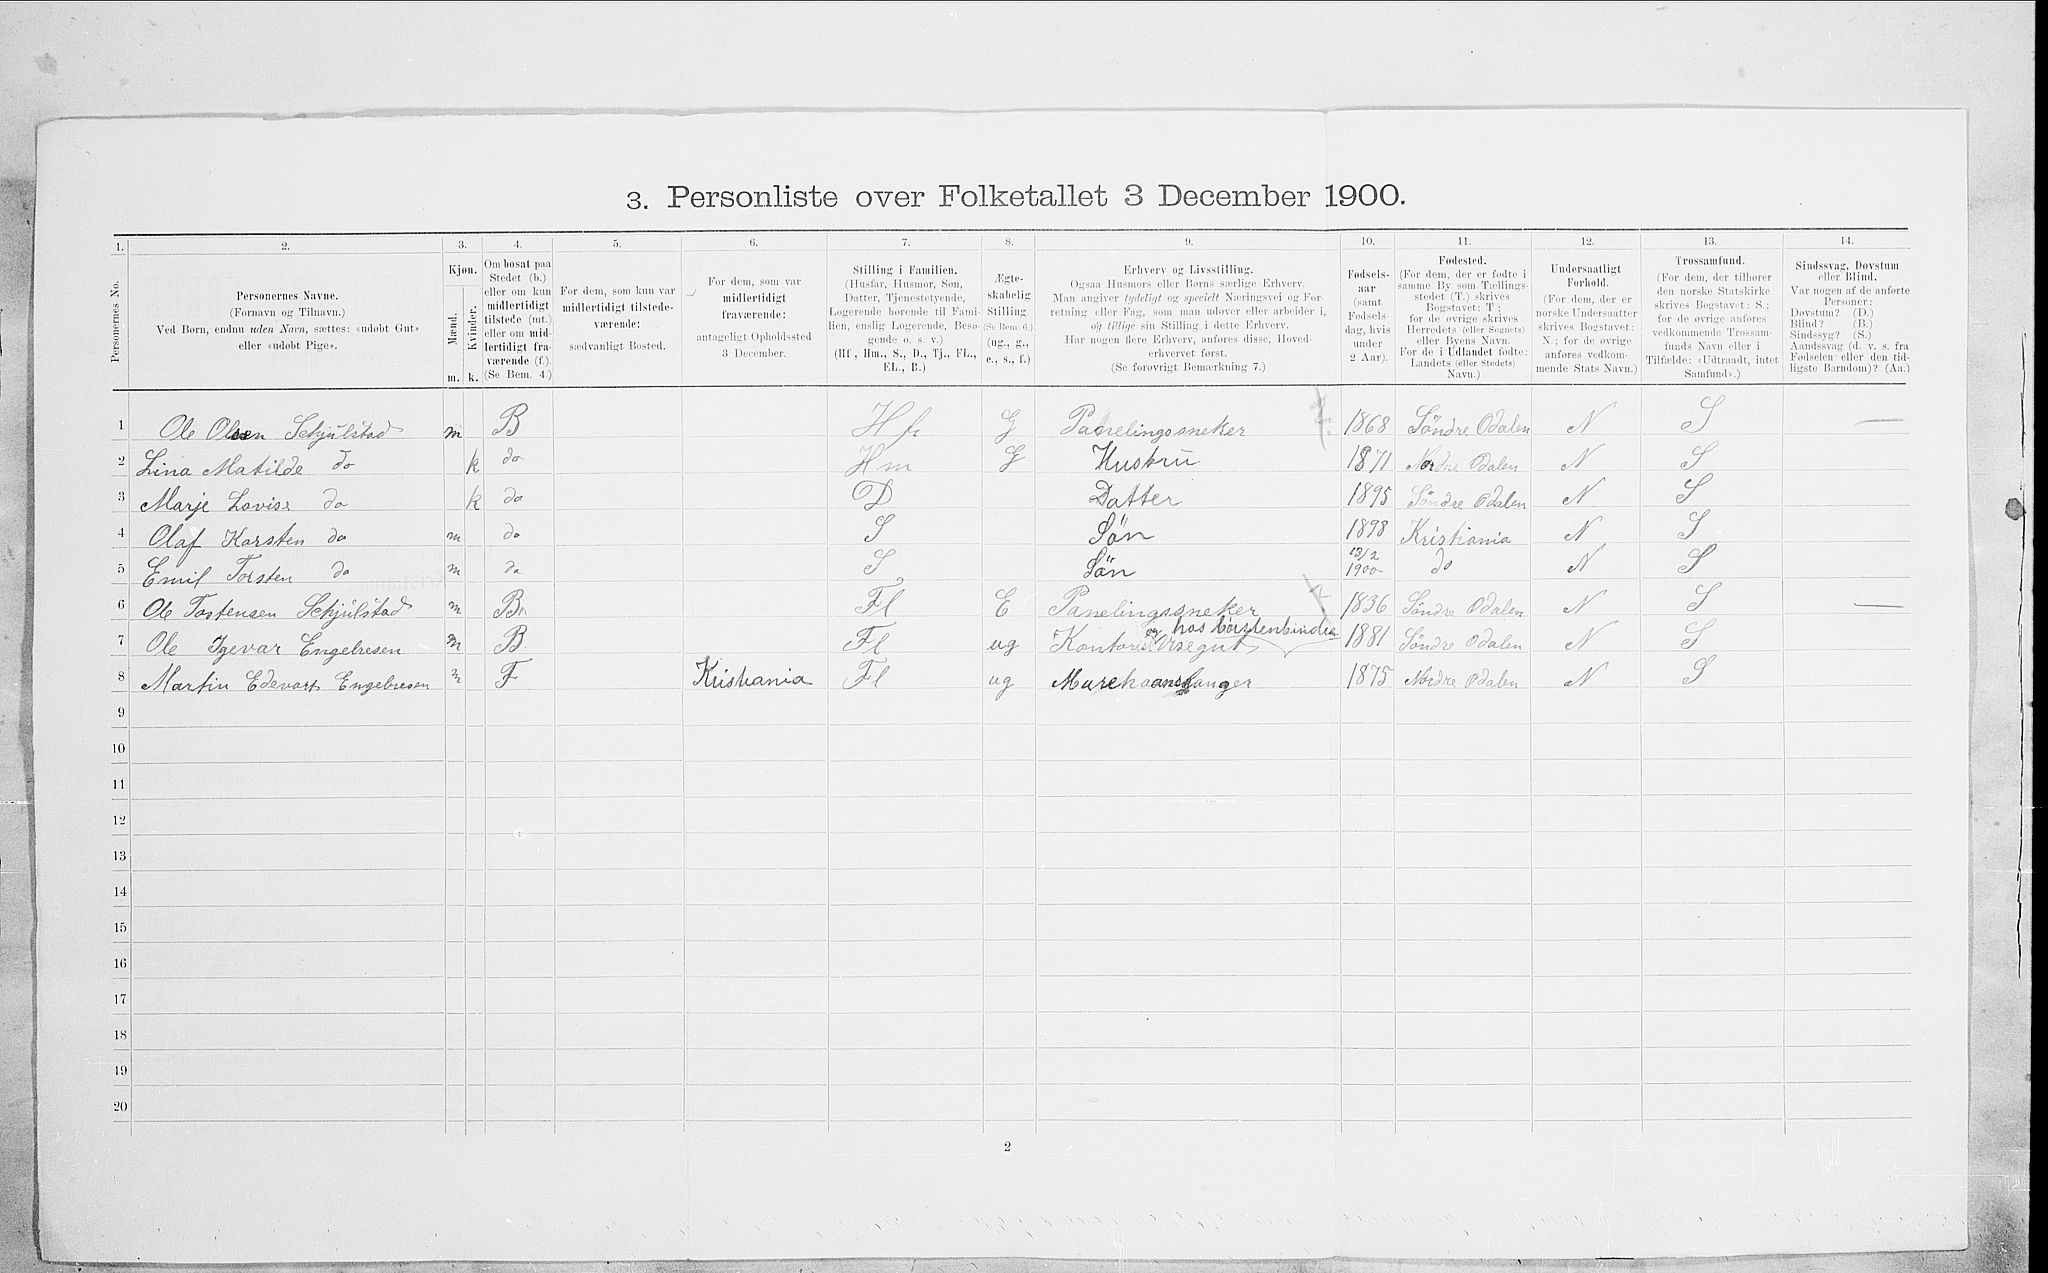 3. Personliste over Folketallet 3 December 1900.
1. 2. 3. 4. 5. 6. 7. 8. 9. 10. 11. 12. 13. 14.
Personernes No.
Personernes Navne.
(Fornavn og Tilnavn.)
Ved Børn, endnu uden Navn, sættes: «udøbt Gut»
eller «udøbt Pige».
Kjøn.
Mænd.
Kvinder.
m. k.
Om bosat paa
Stedet (b.)
eller om kun
midlertidigt
tilstede (mt.)
eller om mid-
lertidigt fra-
værende (f.).
(Se Bem. 4.)
For dem, som kun var
midlertidigt tilstede-
værende:
sædvanligt Bosted.
For dem, som var
midlertidigt
fraværende:
antageligt Opholdssted
3 December.
Stilling i Familien.
(Husfar, Husmor, Søn,
Datter, Tjenestetyende,
Logerende hørende til Fami-
lien, enslig Logerende, Besø-
gende o. s. v.)
(Hf., Hm., S., D., Tj., FL.,
EL., B.)
Ægte-
skabelig
Stilling.
(Se Bem. 6.)
(ug., g.,
e., s., f.)
Erhverv og Livsstilling.
Ogsaa Husmors eller Børns særlige Erhverv.
Man angiver tydeligt og specielt Næringsvei og For-
retning eller Fag, som man udøver eller arbeider i,
og tillige sin Stilling i dette Erhverv.
Har nogen flere Erhverv, anføres disse, Hoved-
erhvervet først.
(Se forøvrigt Bemærkning 7.)
Fødsels-
aar
(samt
Fødsels-
dag, hvis
under
2 Aar).
Fødested.
(For dem, der er fødte i
samme By som Tællings-
stedet (T.) skrives
Bogstavet: T;
for de øvrige skrives
Herredets (eller Sognets)
eller Byens Navn.
For de i Udlandet fødte:
Landets (eller Stedets)
Navn.)
Undersaatligt
Forhold.
(For dem, der er
norske Undersaatter
skrives Bogstavet:
N.; for de øvrige
anføres vedkom-
mende Stats Navn.)
Trossamfund.
(For dem, der tilhører
den norske Statskirke
skrives Bogstavet: S.;
for de øvrige anføres
vedkommende Trossam-
funds Navn eller i
Tilfælde: «Udtraadt, intet
Samfund».)
Sindssvag, Døvstum
eller Blind.
Var nogen af de anførte
Personer:
Døvstum? (D.)
Blind? (B.)
Sindssyg? (S.)
Aandssvag (d. v. s. fra
Fødselen eller den tid-
ligste Barndom)? (Aa.)
1 Ole Olsen Sckjülstad m B Hf G Panelingssneker 1868 Söndre Odalen N S —
2 Lina Matilde do k do Hm G Hustru 1871 Nordre Odalen N S
3 Marje Lovise do k do D Datter 1895 Söndre Odalen N S
4 Olaf Karsten do m do S Sön 1898 Kristiania N S
5 Emil Torsten do m do S Sön 13/2 1900 do N S
6 Ole Tostensen Sckjülstad m B. Fl E Panelingssneker 1836 Söndre Odalen N S —
7 Ole Igevar Engebresen m B. Fl ug og hos börstenbinder 1881 Söndre Odalen N S
8 Martin Edevart Engebresen m F Kristiania Fl ug 1875 Nordre Odalen N S
9
10
11
12
13
14
15
16
17
18
19
20
2